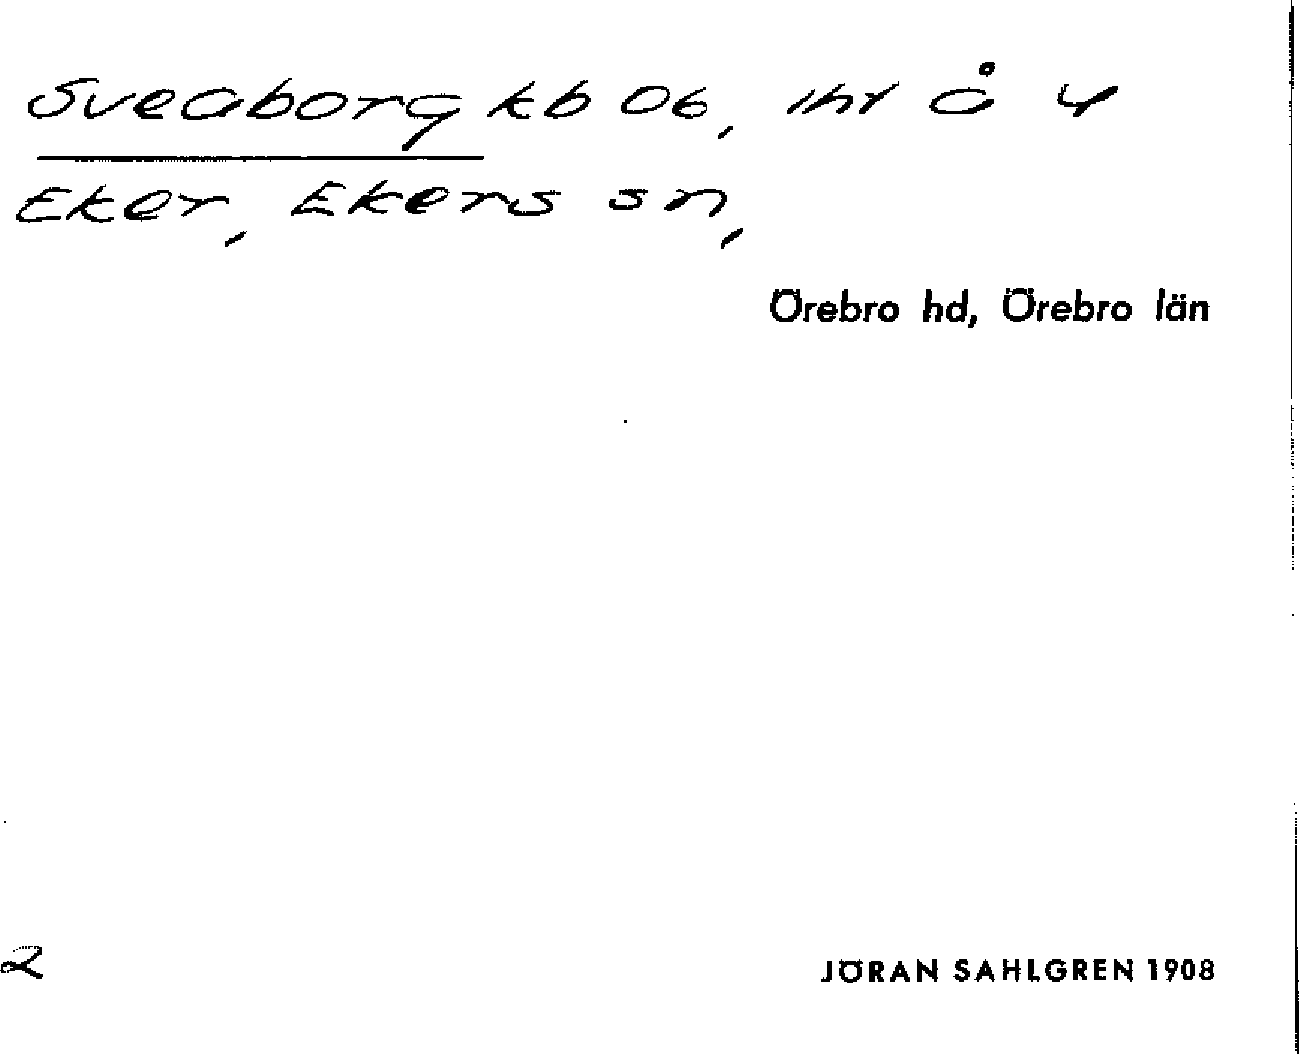 Sveaborg kb 06, 1hr å 4
Eker, Ekers sn,
Örebro hd, Örebro län
2
JÖRAN SAHLGREN 1908